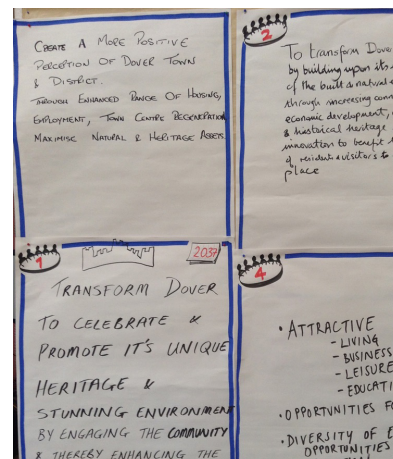 CREATE A MORE POSITIVE
PERCEPTION OF DOVER TOWN
& DISTRICT.
THROUGH ENHANCED RANGE OF HOUSING,
EMPLOYMENT, TOWN CENTRE REGENERATION
MAXIMISE NATURAL & HERITAGE ASSETS.
2
To transform Dover
by building upon its
of the built & natural
through increasing
economic development,
& historical heritage
innovation to benefit
of residents & visitors to
place
1
2037
TRANSFORM DOVER
TO CELEBRATE &
PROMOTE IT'S UNIQUE
HERITAGE &
STUNNING ENVIRONMENT
BY ENGAGING THE COMMUNITY
& THEREBY ENHANCING THE
4
• ATTRACTIVE
- LIVING
- BUSINESS
- LEISURE
- EDUCATI
• OPPORTUNITIES
• DIVERSITY OF
OPPORTUNITIES